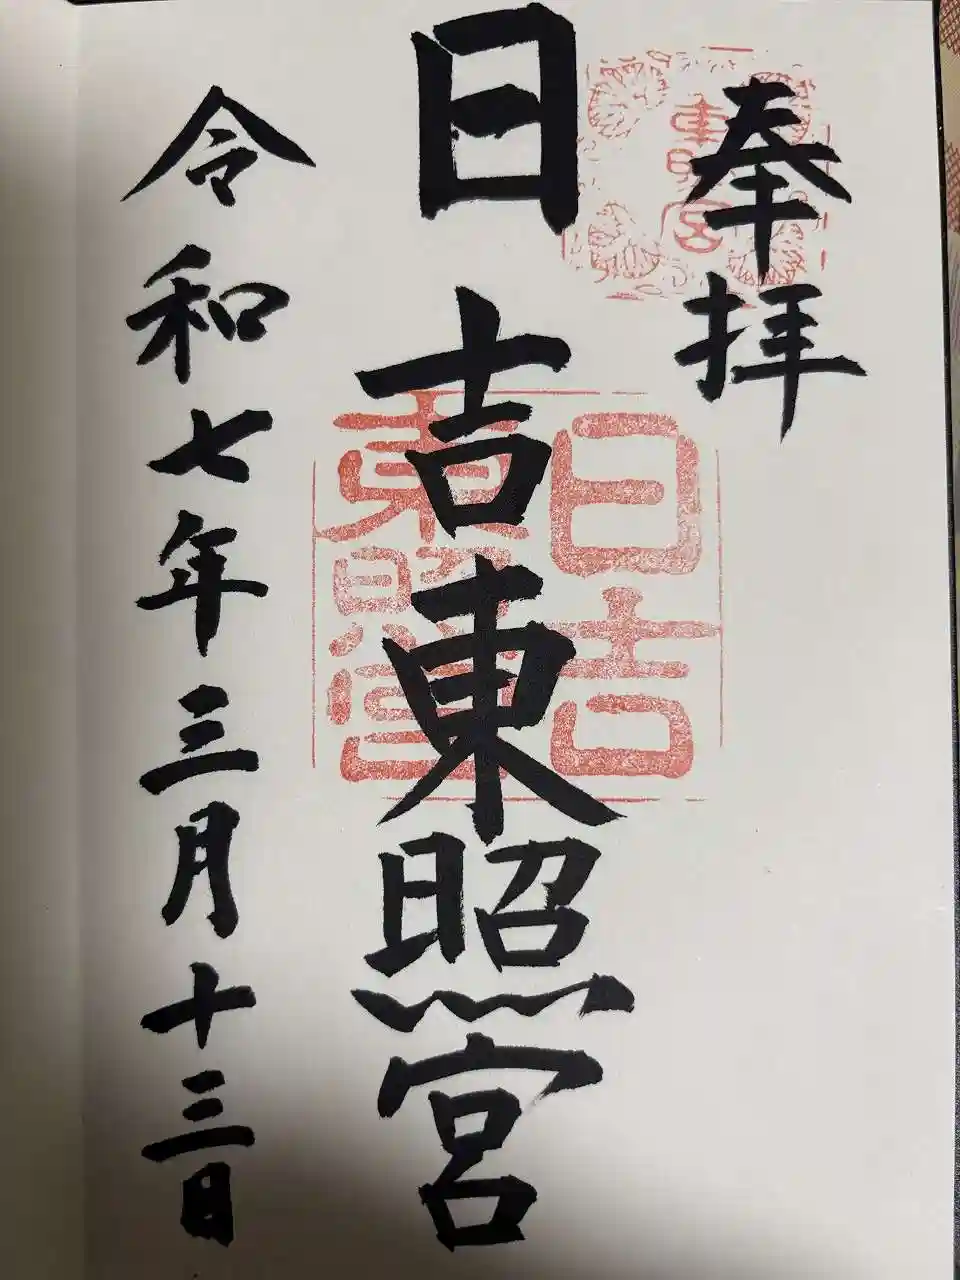 奉拝
東照宮
日吉東照宮
日吉
東照宮
令和七年三月十三日